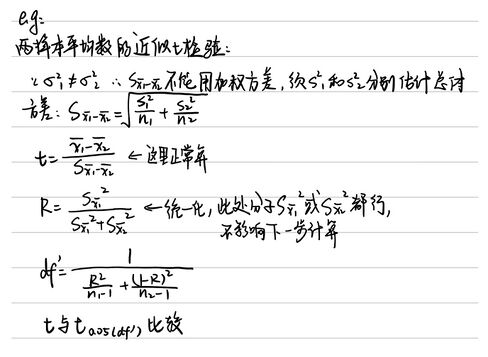 e.g:
两样本平均数的近似t检验:
∵ σ₁² ≠ σ₂² ∴ S_{x̄₁-x̄₂} 不能用加权方差, 须 S₁² 和 S₂² 分别估计总体
方差: S_{x̄₁-x̄₂} = √(S₁²/n₁ + S₂²/n₂)
t = (x̄₁-x̄₂)/S_{x̄₁-x̄₂} ← 这里正常算
R = S_{x̄₁}²/(S_{x̄₁}² + S_{x̄₂}²) ← 统一化, 此处分子 S_{x̄₁}² 或 S_{x̄₂}² 都行,
不影响下一步计算
df' = 1/(R²/(n₁-1) + (1-R)²/(n₂-1))
t 与 t_{0.05(df')} 比较